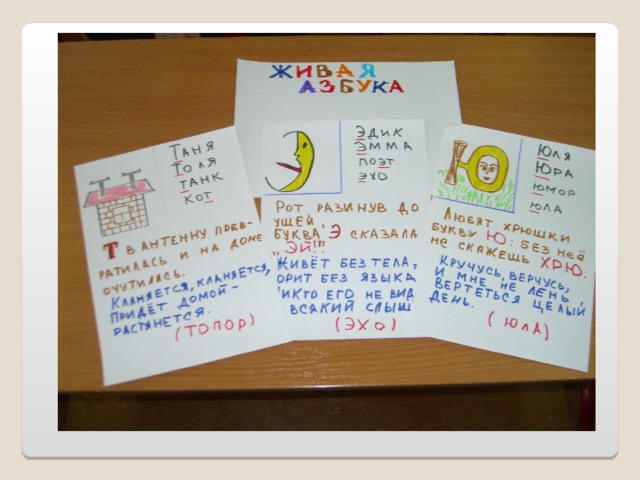 ЖИВАЯ
АЗБУКА
ТАНЯ
ТОЛЯ
ТАНК
КОТ
Т В АНТЕННУ ПРЕВ-
РАТИЛАСЬ И НА ДОМЕ
ОЧУТИЛАСЬ.
КЛАНЯЕТСЯ, КЛАНЯЕТСЯ,
ПРИДЁТ ДОМОЙ -
РАСТЯНЕТСЯ.
(ТОПОР)
ЭДИК
ЭММА
ПОЭТ
ЭХО
РОТ РАЗИНУВ ДО
УШЕЙ
БУКВА Э СКАЗАЛА
"ЭЙ!"
ЖИВЁТ БЕЗ ТЕЛА,
ОРИТ БЕЗ ЯЗЫКА
НИКТО ЕГО НЕ ВИД
ВСЯКИЙ СЛЫШ
(ЭХО)
ЮЛЯ
ЮРА
ЮМОР
ЮЛА
ЛЮБЯТ ХРЮШКИ
БУКВУ Ю: БЕЗ НЕЁ
НЕ СКАЖЕШЬ ХРЮ.
КРУЧУСЬ, ВЕРЧУСЬ,
И МНЕ НЕ ЛЕНЬ
ВЕРТЕТЬСЯ ЦЕЛЫЙ
ДЕНЬ.
(ЮЛА)